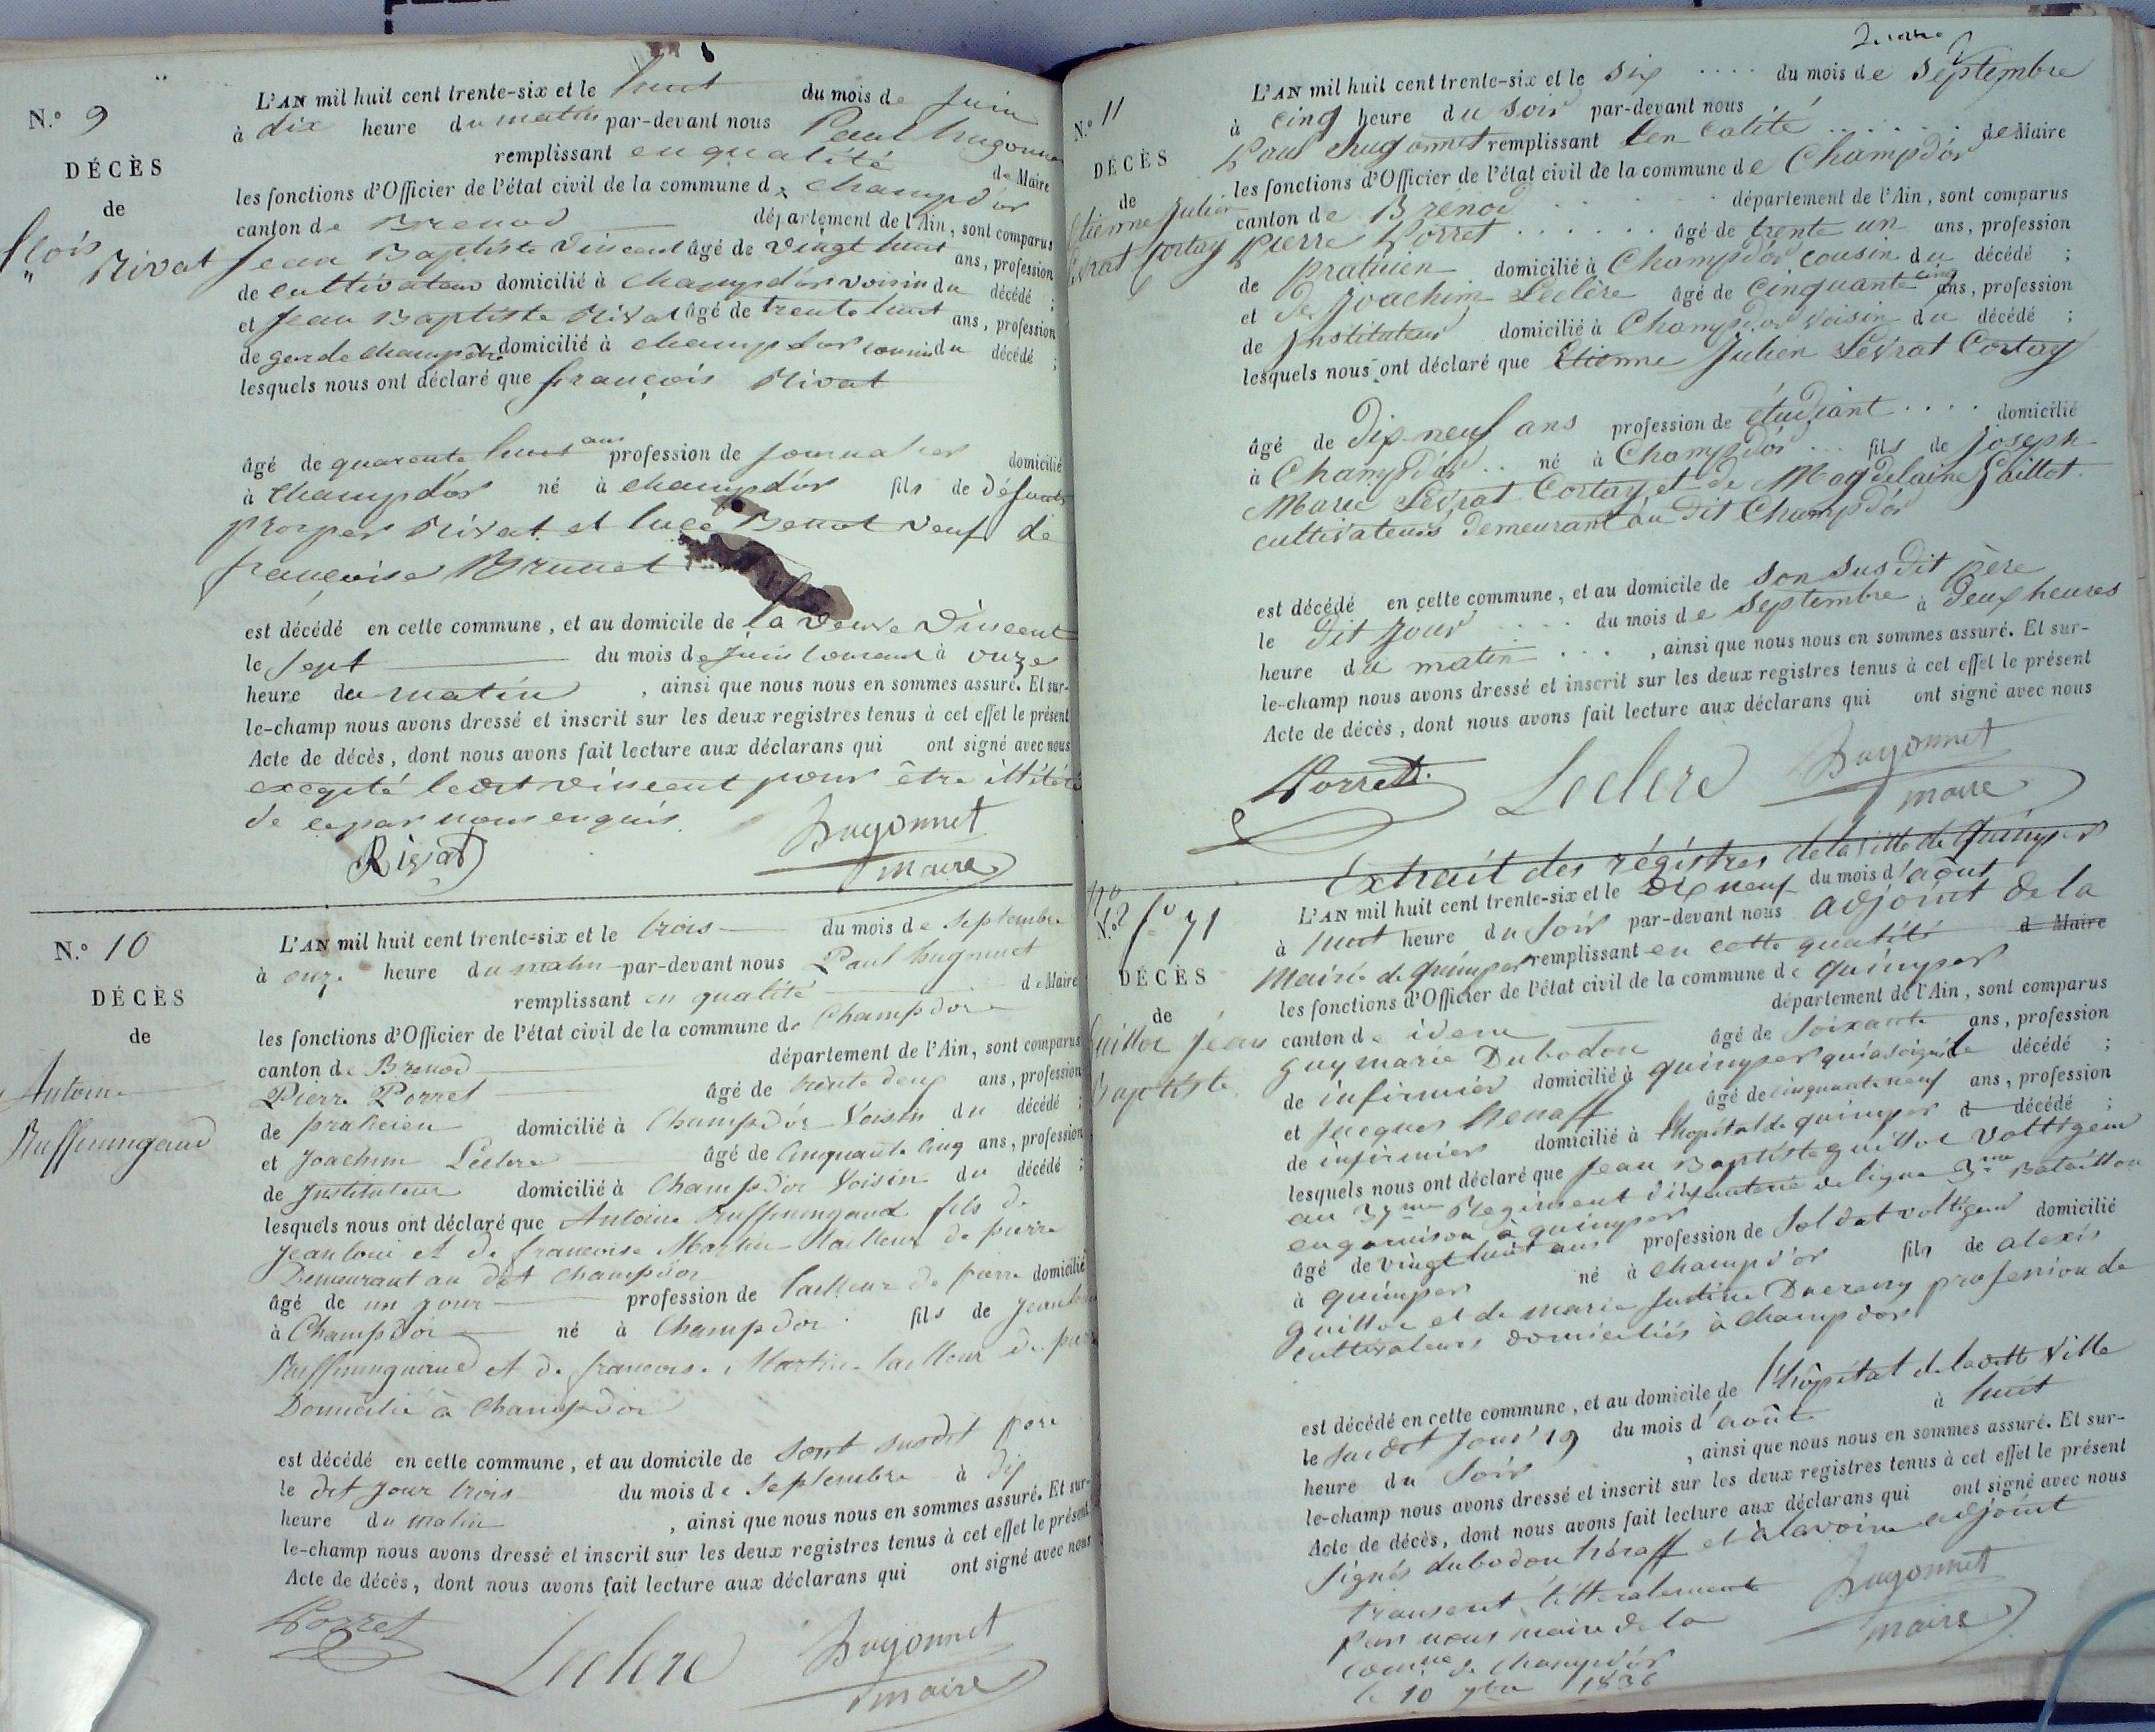 N.º 9
DÉCÈS
de
çois
Rivat
L'AN mil huit cent trente-six et le huit du mois de juin
à dix heure du matin par-devant nous Paul hugonnet
remplissant en qualité de Maire
les fonctions d'Officier de l'état civil de la commune de champd'or
canton de Brenod département de l'Ain, sont comparus
Jean Baptiste Vincent âgé de vingt huit ans, profession
de cultivateur domicilié à champd'or voisin du décédé ;
et Jean Baptiste Rivat âgé de trente huit ans, profession
de garde champêtre domicilié à champdor cousin du décédé ;
lesquels nous ont déclaré que françois Rivat
âgé de quarante huit ans profession de journalier domicilié
à champd'or né à champd'or fils de défunts
prosper Rivat et luce Benot veuf de
françoise Brunet
est décédé en cette commune, et au domicile de la veuve Vincent
le sept du mois de juin courant à onze
heure du matin, ainsi que nous nous en sommes assuré. Et sur-
le-champ nous avons dressé et inscrit sur les deux registres tenus à cet effet le présent
Acte de décès, dont nous avons fait lecture aux déclarans qui ont signé avec nous
excepté ledit vincent pour être illitéré
de ce par nous enquis.
Rivat
hugonnet
maire
N.º 10
DÉCÈS
de
Antoine
Ruffinengaud
L'AN mil huit cent trente-six et le trois du mois de septembre
à onze heure du matin par-devant nous Paul hugonnet
remplissant en qualité de Maire
les fonctions d'Officier de l'état civil de la commune de Champdor
canton de Brenod département de l'Ain, sont comparus
Pierre Porret âgé de trente deux ans, profession
de praticien domicilié à Champd'or Voisin du décédé ;
et Joachim Leclere âgé de Cinquante cinq ans, profession
de Instituteur domicilié à Champdor Voisin du décédé ;
lesquels nous ont déclaré que Antoine fils de
Jean loui et de francoise Martin tailleur de pierre
Demeurant au dit Champdor
âgé de un jour profession de tailleur de pierre domicilié
à Champdor né à Champdor fils de Jean
et de francoise Martin tailleur de pierre
Domicilié à Champdor
est décédé en cette commune, et au domicile de sont susdit père
le dit jour trois du mois de septembre à dix
heure du matin, ainsi que nous nous en sommes assuré. Et sur-
le-champ nous avons dressé et inscrit sur les deux registres tenus à cet effet le présent
Acte de décès, dont nous avons fait lecture aux déclarans qui ont signé avec nous
Porret
Leclerc
hugonnet
maire
N.º 11
DÉCÈS
de
Etienne Julien
Levrat Cortay
L'AN mil huit cent trente-six et le six du mois de Septembre
à cinq heure du soir par-devant nous
Paul hugonnet remplissant en calité de Maire
les fonctions d'Officier de l'état civil de la commune de Champd'or
canton de Brénod département de l'Ain, sont comparus
Pierre Porret âgé de trente un ans, profession
de praticien domicilié à Champd'or cousin du décédé ;
et de Joachim Leclère âgé de Cinquante cinq ans, profession
de Instituteur domicilié à Champdor Voisin du décédé ;
lesquels nous ont déclaré que Etienne Julien Levrat Cortay
âgé de Dix-neuf ans profession de étudiant domicilié
à Champd'or né à Champdor fils de joseph
Marie Levrat Cortay et de Magdelaine Paillot
cultivateurs Demeurant au dit Champd'or
est décédé en cette commune, et au domicile de son sus dit père
le dit jour du mois de septembre à Deux heures
heure du matin, ainsi que nous nous en sommes assuré. Et sur-
le-champ nous avons dressé et inscrit sur les deux registres tenus à cet effet le présent
Acte de décès, dont nous avons fait lecture aux déclarans qui ont signé avec nous
Porret
Leclerc
hugonnet
maire
Extrait des régistres de la ville de Quimper
N.º 12
fº 71
DÉCÈS
de
Guillot Jean
Baptiste
L'AN mil huit cent trente-six et le dix neuf du mois d'août
à huit heure du soir par-devant nous adjoint de la
Mairie de quimper remplissant en cette qualité d Maire
les fonctions d'Officier de l'état civil de la commune de quimper
canton de idem département de l'Ain, sont comparus
guy marie Dubodou âgé de soixante ans, profession
de infirmier domicilié à quimper qui a soigné le décédé ;
et jacques henaff âgé de cinquante neuf ans, profession
de infirmier domicilié à l'hopital de quimper d décédé ;
lesquels nous ont déclaré que Jean Baptiste guillot Voltigeur
au 37me Regiment d'infanterie de ligne 3me Bataillon
en garnison à quimper
âgé de vingt huit ans profession de soldat voltigeur domicilié
à quimper né à champd'or fils de alexis
guillot et de marie justine Ducruy profession de
cultivateurs domiciliés à champdor
est décédé en cette commune, et au domicile de l'hôpital de la dite ville
le susdit jour 19 du mois d'août à huit
heure du soir, ainsi que nous nous en sommes assuré. Et sur-
le-champ nous avons dressé et inscrit sur les deux registres tenus à cet effet le présent
Acte de décès, dont nous avons fait lecture aux déclarans qui ont signé avec nous
signés dubodou, hénaff et adjoint
transcrit littéralement
par nous maire de la
comme de champd'or
le 10 9bre 1836
hugonnet
maire